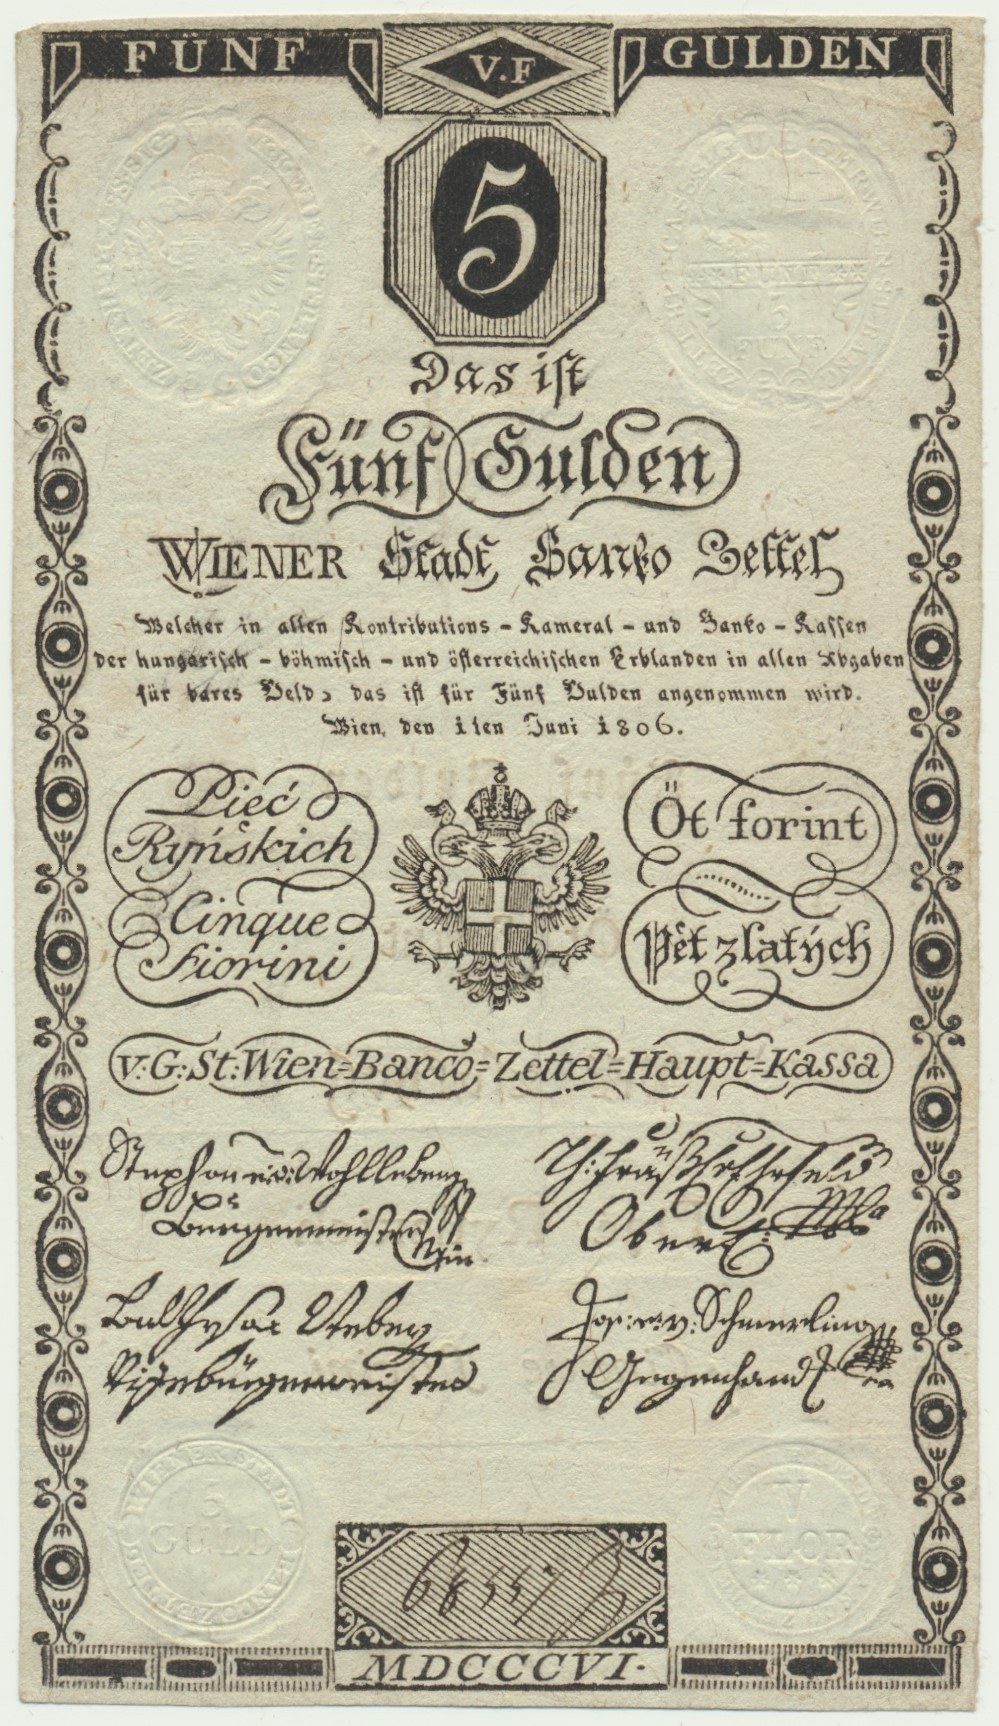 FÜNF V.F GULDEN
5
Das ist
Fünf Gulden
WIENER Stadt Banko Zettel
Welcher in allen Kontributions - Kameral - und Banko - Kassen
der hungarisch - böhmisch - und österreichischen Erblanden in allen Abgaben
für bares Geld, das ist für Fünf Gulden angenommen wird.
Wien, den 1ten Juni 1806.
Pieć
Ryńskich
Cinque
Fiorini
Öt forint
Pět zlatých
V: G: St: Wien=Banco=Zettel=Haupt=Kassa
Stephan
Burgermeister
Jos: e: v: Schmerling
Gegenhand
Vizebürgermeister
FÜNF
5
5
GULD
V
FLOR
MDCCCVI.